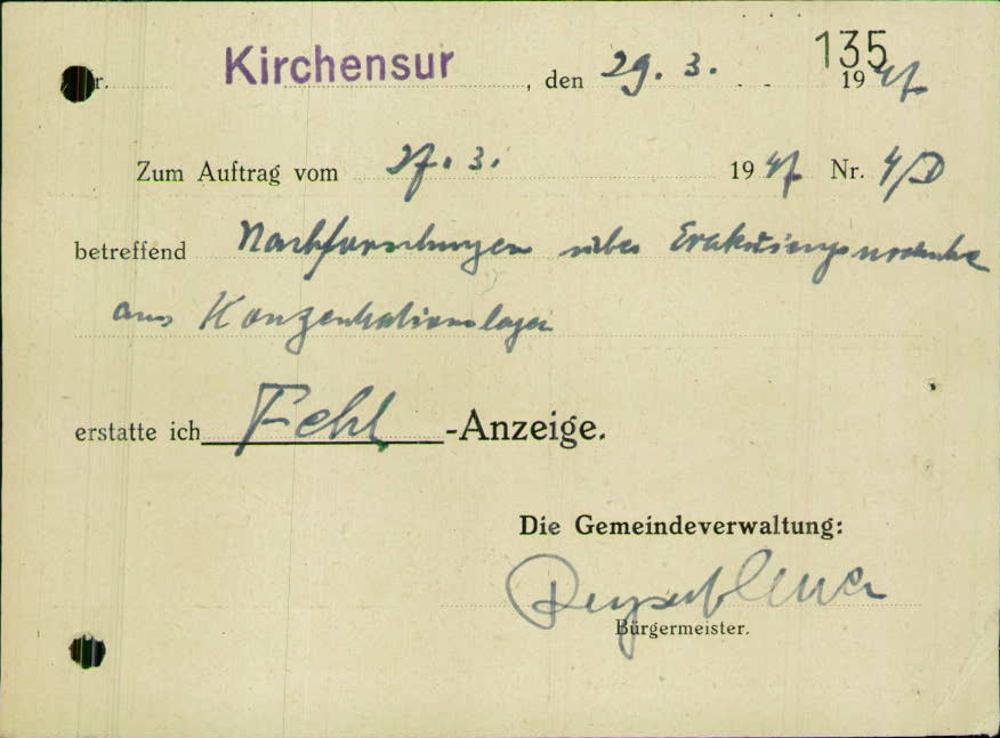 135
Kirchensur, den 29. 3. 1947
Zum Auftrag vom 27. 3. 1947 Nr. 4/D
betreffend Nachforschungen über
aus Konzentrationslager
erstatte ich Fehl-Anzeige.
Die Gemeindeverwaltung:
Bürgermeister.